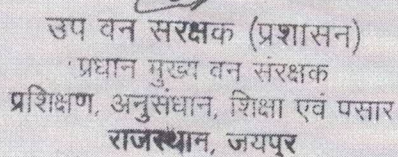 उप वन सरक्षक (प्रशासन)
प्रधान मुख्य वन संरक्षक
प्रशिक्षण, अनुसंधान, शिक्षा एवं पसार
राजस्थान, जयपुर